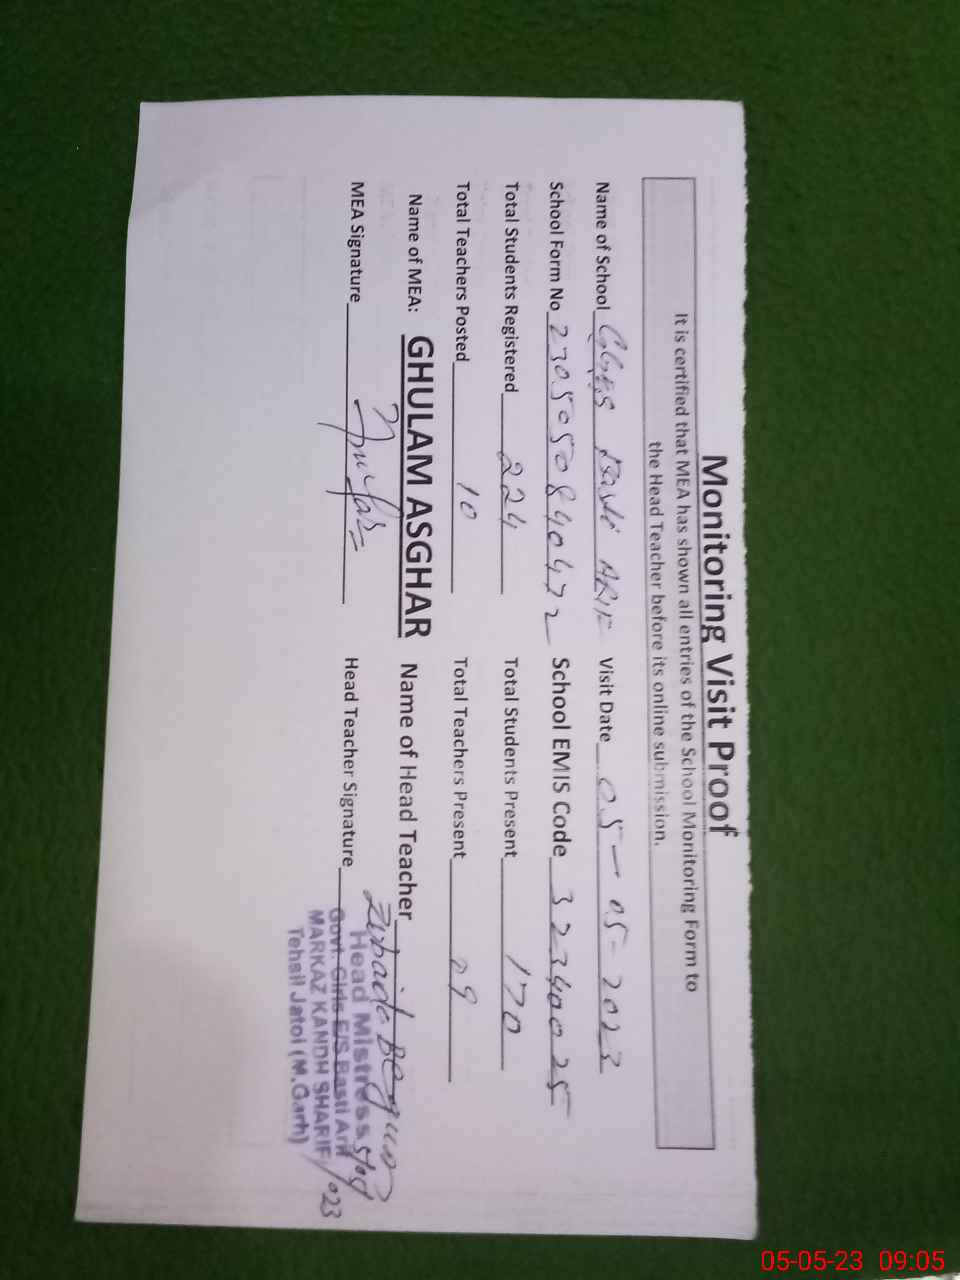 Monitoring Visit Proof
It is certified that MEA has shown all entries of the School Monitoring Form to
the Head Teacher before its online submission.
Name of School GGES Basti ARIF Visit Date 05-05-2023
School Form No 2305050840472 School EMIS Code 32340025
Total Students Registered 224 Total Students Present 170
Total Teachers Posted 10 Total Teachers Present 09
Name of MEA: GHULAM ASGHAR Name of Head Teacher Zubaida Begum
MEA Signature Head Teacher Signature
Head Mistress
Govt. Girls E/S Basti Arif
MARKAZ KANDH SHARIF
Tehsil Jatoi (M.Garh)
05-05-23 09:05